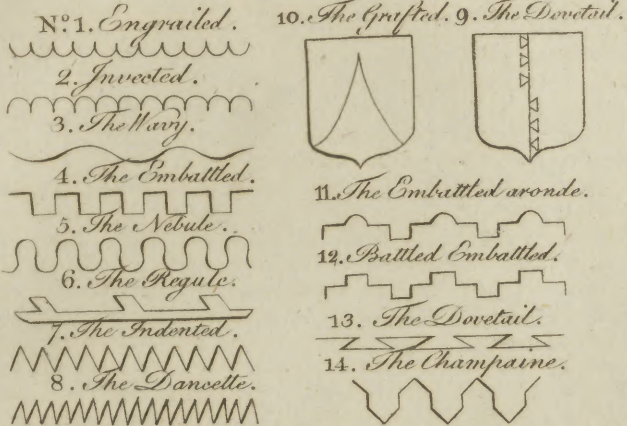 No. 1. Engrailed.
2. Invected.
3. The Wavy.
4. The Embattled.
5. The Nebule.
6. The Regule.
7. The Indented.
8. The Dancette.
10. The Grafted.
9. The Dovetail.
11. The Embattled aronde.
12. Battled Embattled.
13. The Dovetail.
14. The Champaine.